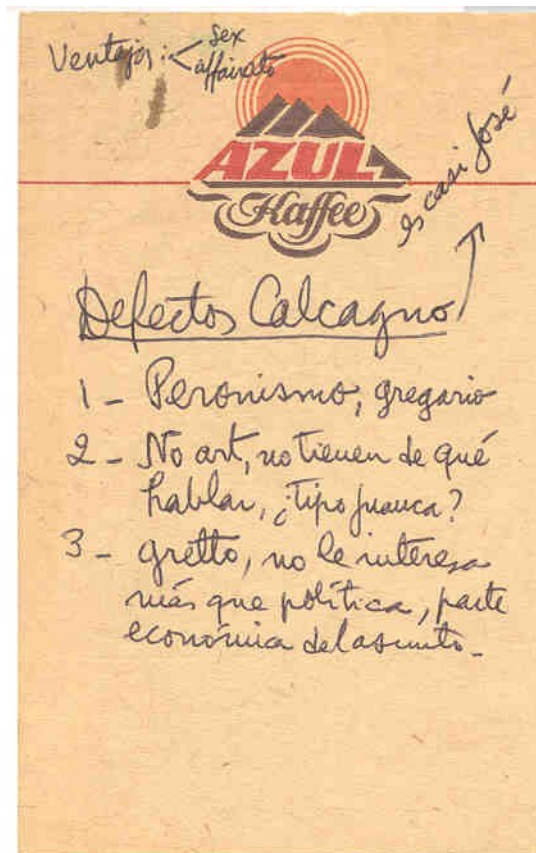 Ventajas: < sex
affairato
AZUL
Kaffee
es casi José
Defectos Calcagno
1 - Peronismo, gregario
2 - No art, no tienen de qué
hablar, ¿tipo Juanca?
3 - gretto, no le interesa
más que política, parte
económica del asunto -